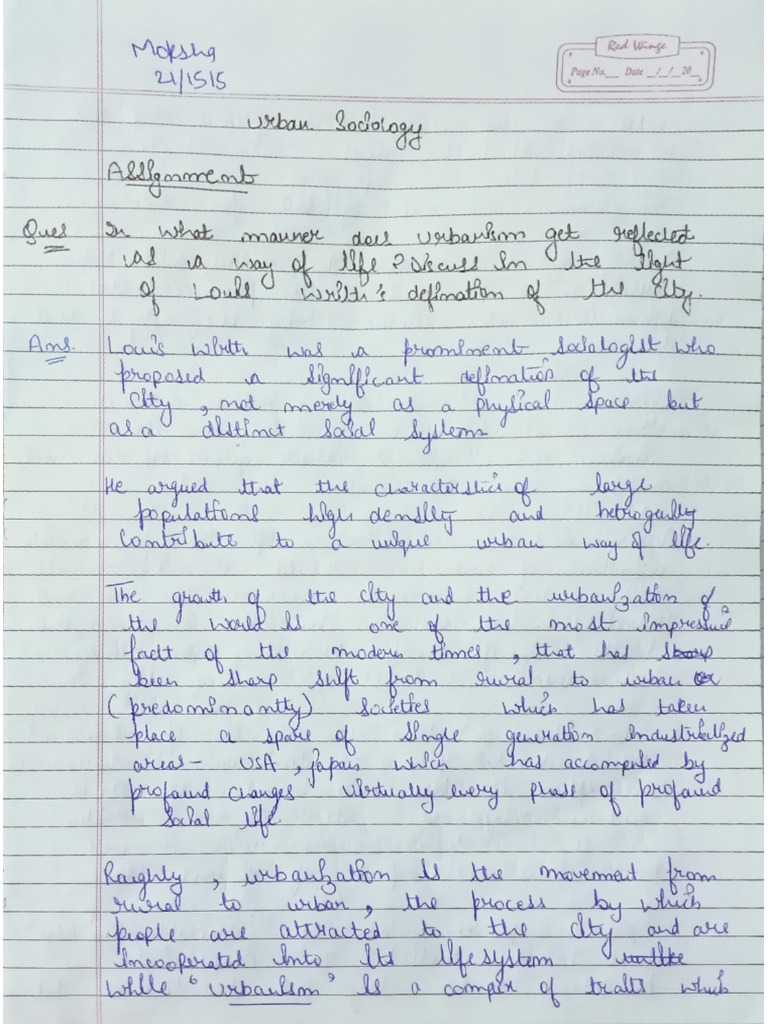 Moksha
21/1515
Red Wings
Page No. Date / / 20
Urban Sociology
Assignment
Ques In what manner does urbanism get reflected
as a way of life? Discuss in the light
of Louis Wirth's defination of the city.
Ans. Louis Wirth was a prominent sociologist who
proposed a significant defination of the
City, not merely as a physical space but
as a distinct social system
He argued that the characterstics of large
populations high density and
Contribute to a unique urban way of life.
The growth of the city and the urbanization of
the world is one of the most impressive
fact of the modern times, that has sharp
been sharp shift from rural to urban or
(predominantly) societies which has taken
place a spare of single generation industrialized
areas - USA, Japan which has accompenied by
profound changes virtually every phase of profound
social life.
Roughly, urbanization is the movement from
rural to urban, the process by which
people are attracted to the city and are
incooperated into its life system
While 'urbanism' is a complex of traits which